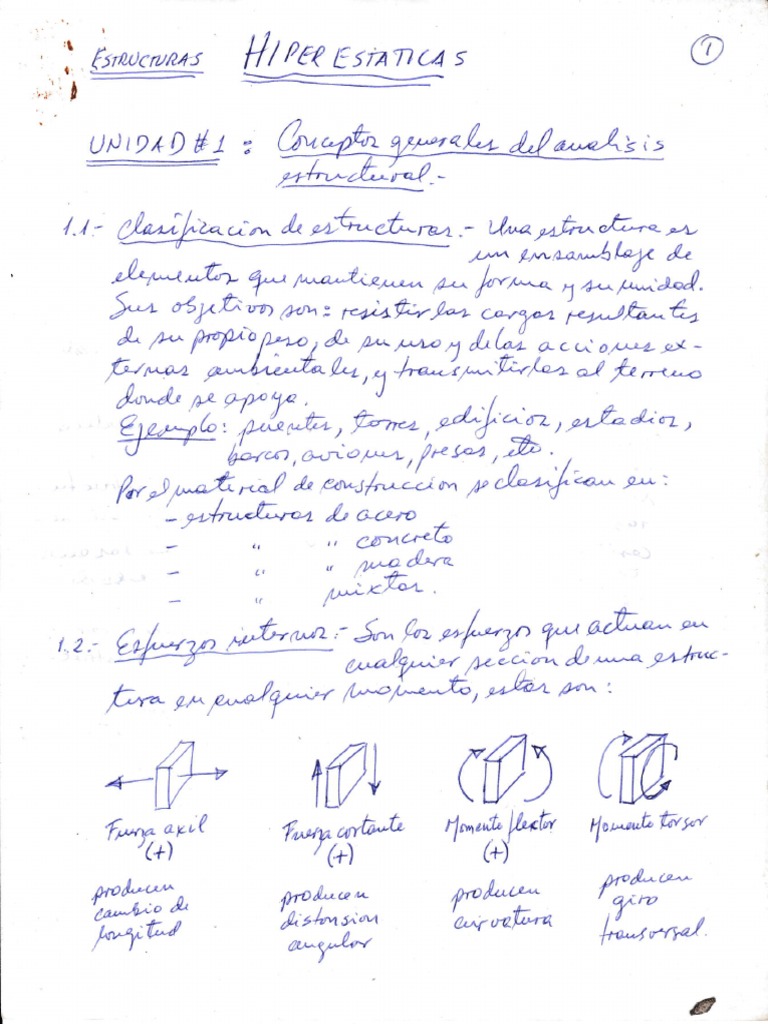 ESTRUCTURAS HIPERESTATICAS 1
UNIDAD #1 : Conceptos generales del analisis
estructural.-
1.1.- Clasificacion de estructuras.- Una estructura es
un ensamblaje de
elementos que mantienen su forma y su unidad.
Sus objetivos son: resistir las cargas resultantes
de su propio peso, de su uso y de las acciones ex-
ternas ambientales, y transmitirlas al terreno
donde se apoya.
Ejemplo: puentes, torres, edificios, estadios,
barcos, aviones, presas, etc.
Por el material de construccion se clasifican en:
- estructuras de acero
- " " concreto
- " " madera
- " mixtas.
1.2.- Esfuerzos internos:- Son los esfuerzos que actuan en
cualquier seccion de una estruc-
tura en cualquier momento, estos son:
Fuerza axil Fuerza cortante Momento flextor Momento torsor
(+) (+) (+)
producen producen producen producen
cambio de distonsion curvatura giro
longitud angular transversal.